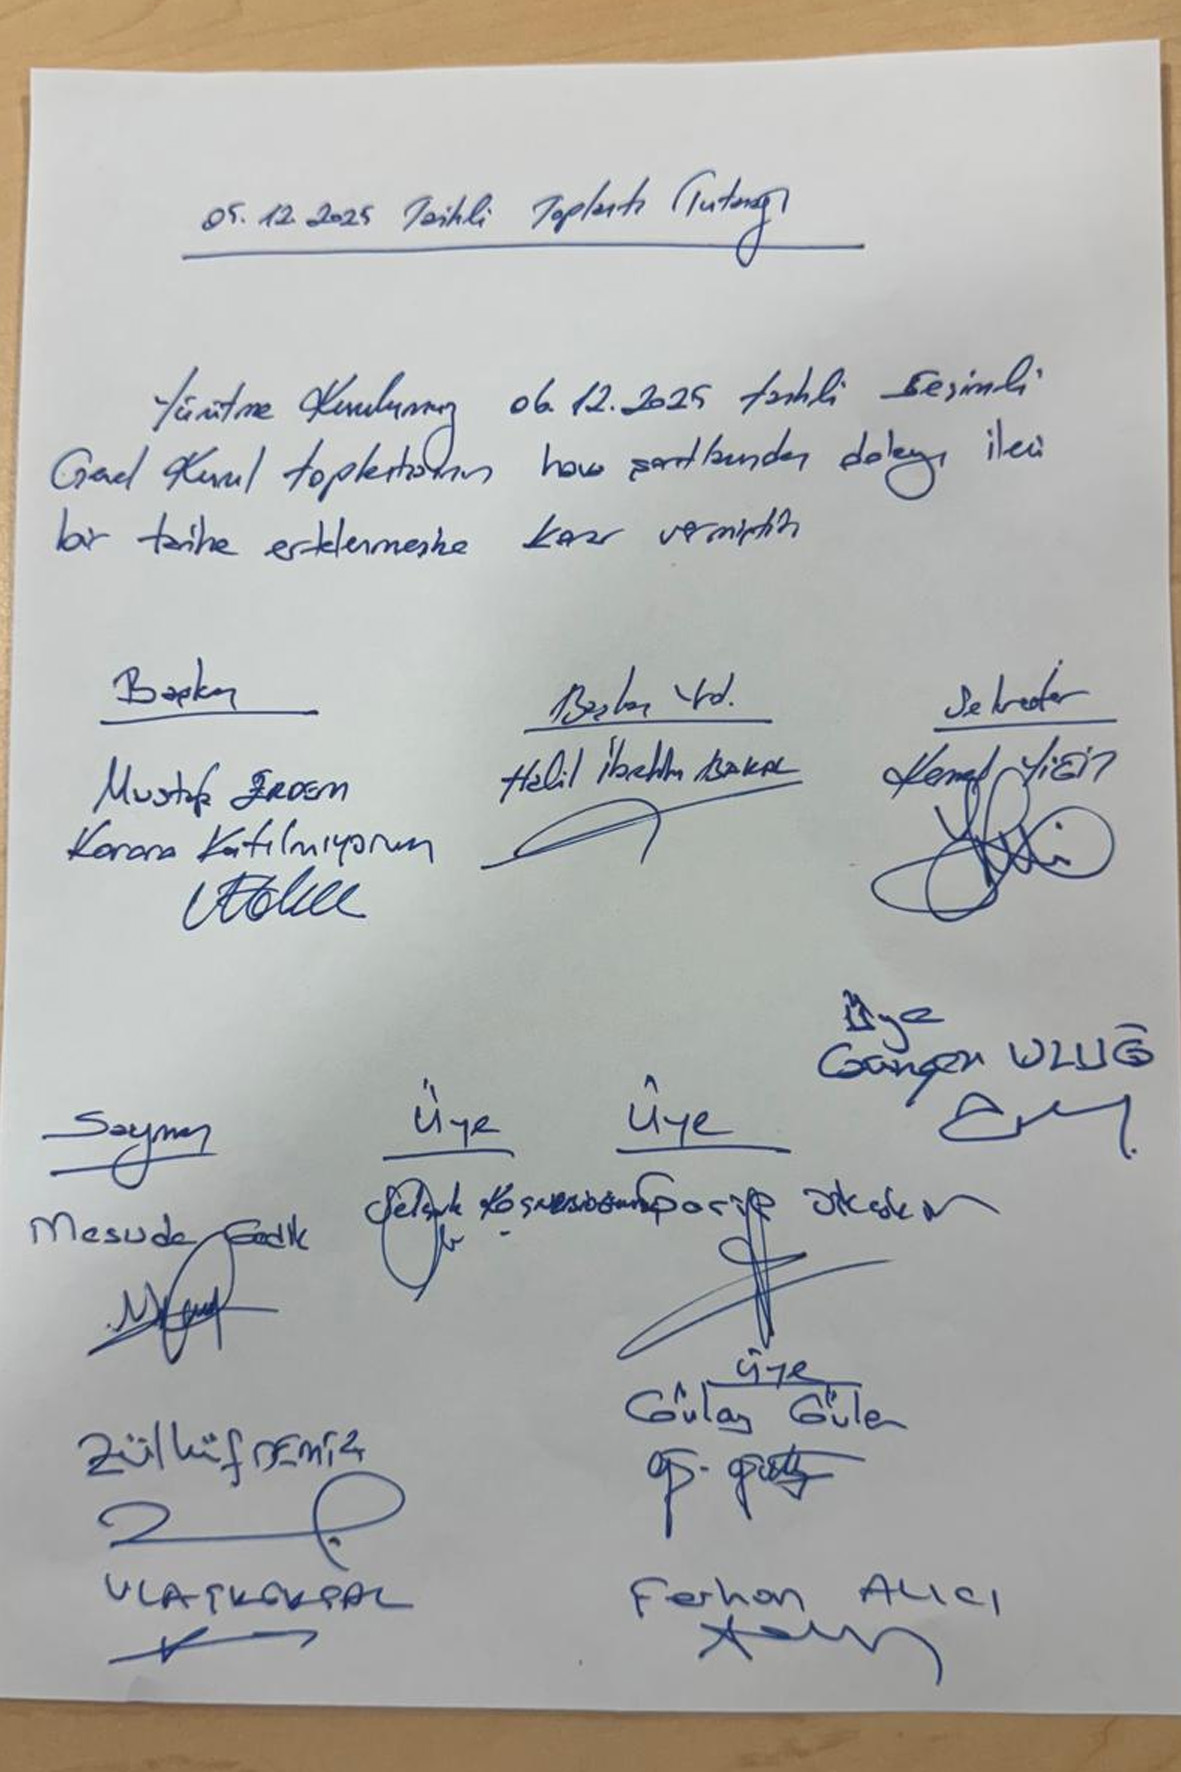 05.12.2025 Tarihli Toplantı Tutanağı
Yürütme Kurulumuz 06.12.2025 tarihli Seçimli
Genel Kurul toplantısının hava şartlarından dolayı ileri
bir tarihe ertelenmesine karar vermiştir
Başkan
Başkan Yrd.
Sekreter
Mustafa ERDEM
Halil İbrahim BAKAL
Kemal YİĞİT
Karara Katılmıyorum
Üye
Güngör ULUĞ
Sayman
Üye
Üye
Mesude Gedik
Selçuk
Üye
Gülay Güler
Zülküf DEMİR
Ferhan ALICI